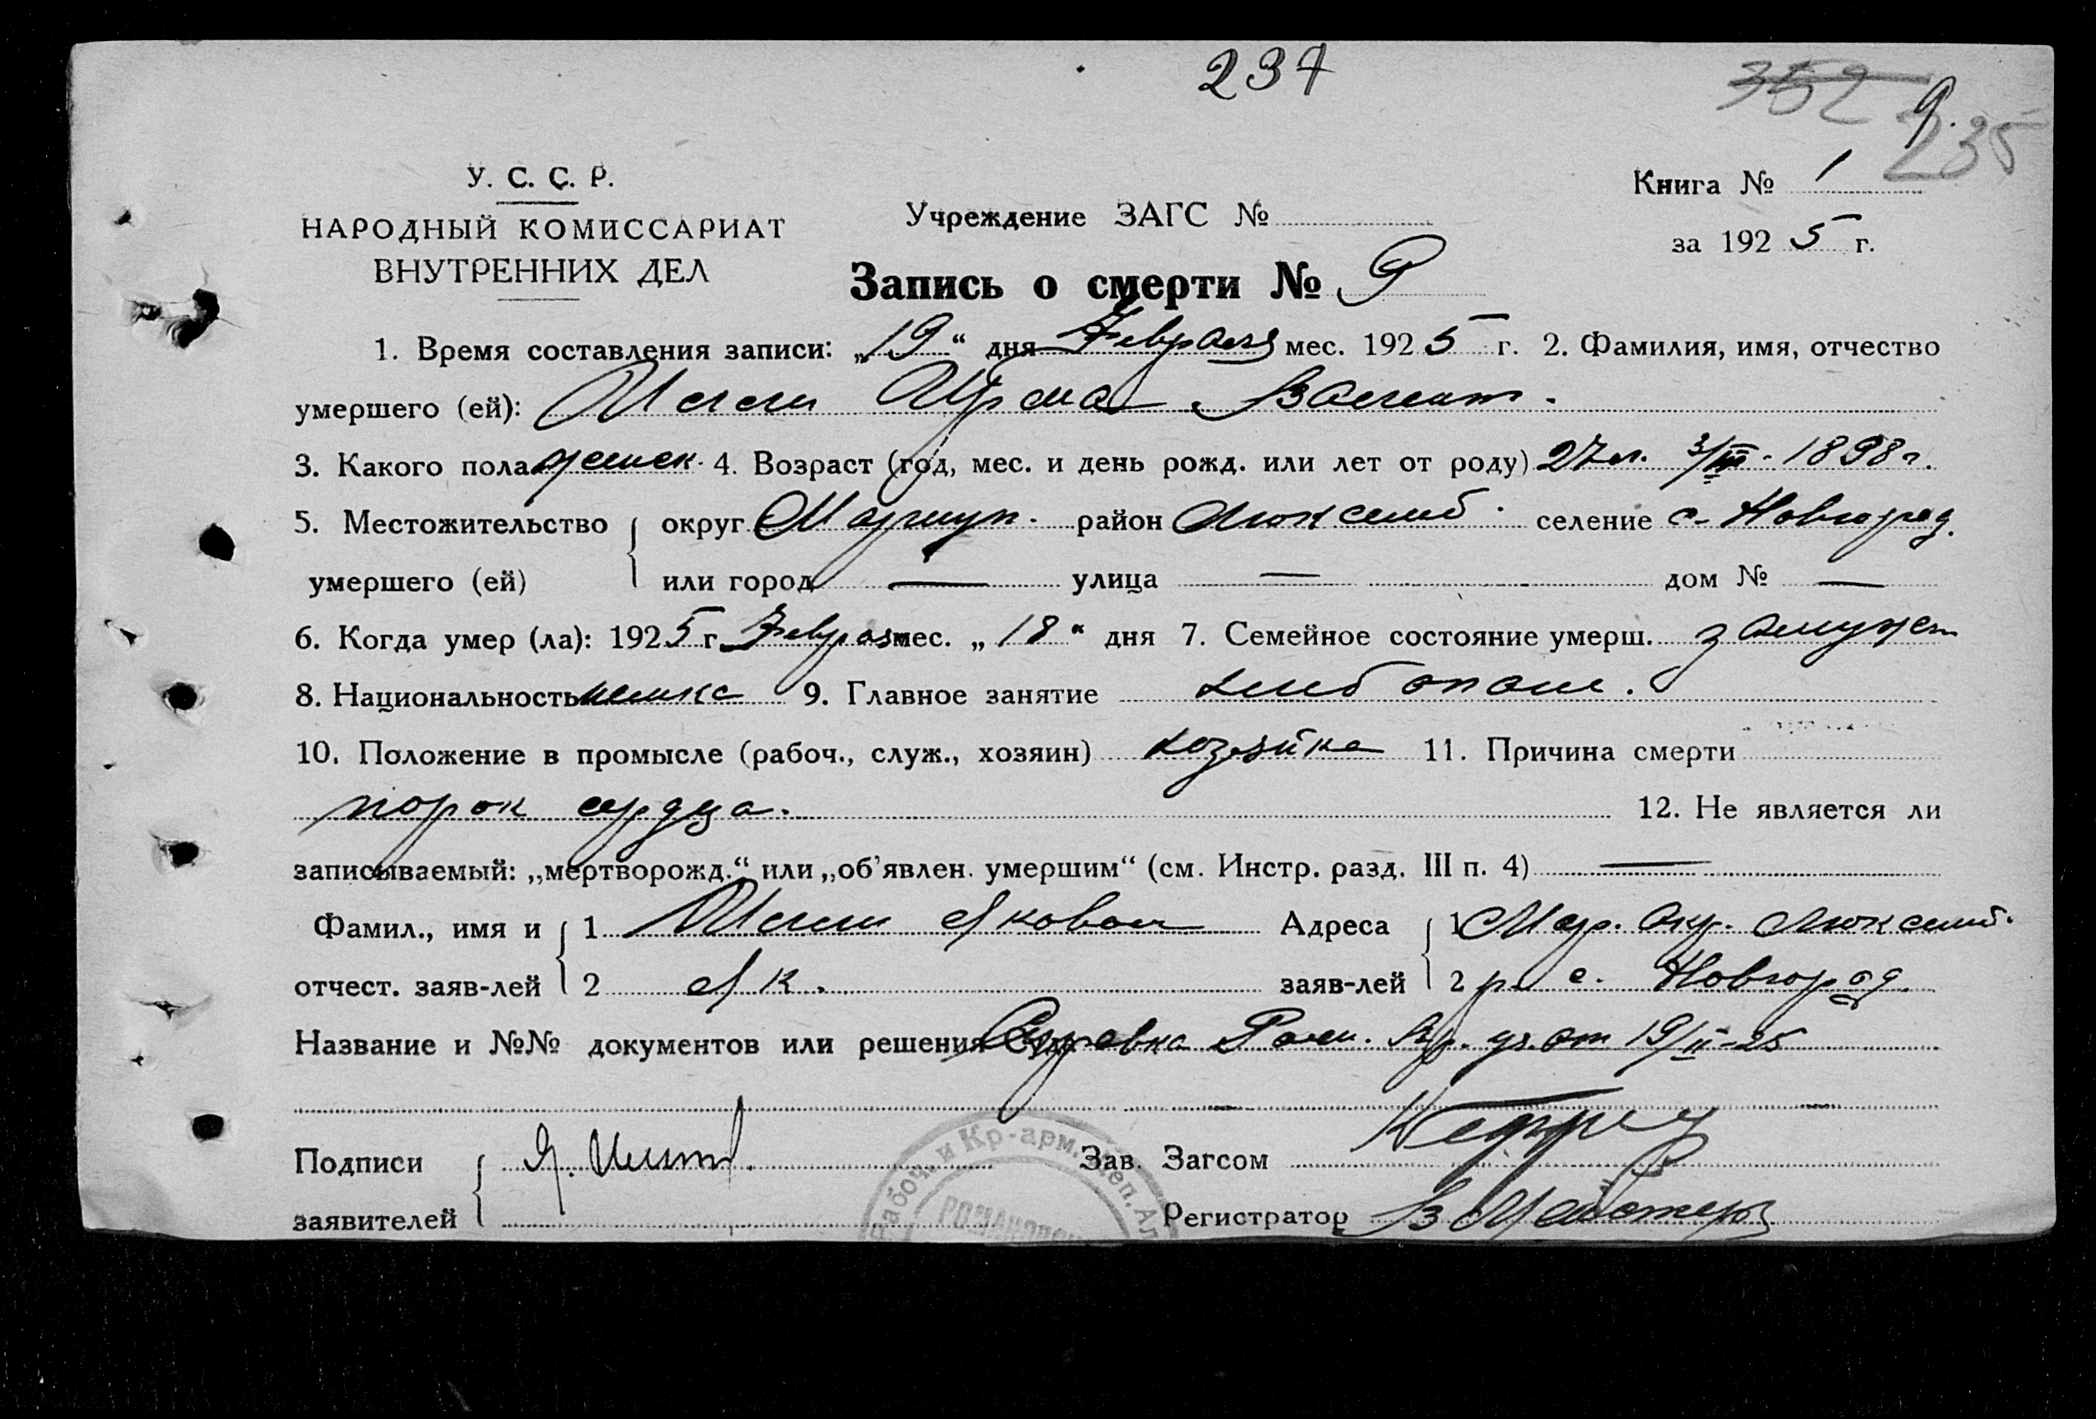 234
352
9.
235
У. С. С. Р.
НАРОДНЫЙ КОМИССАРИАТ
ВНУТРЕННИХ ДЕЛ
Учреждение ЗАГС №
Книга № 1
за 1925 г.
Запись о смерти № 9
1. Время составления записи: „19“ дня Февраля мес. 1925 г. 2. Фамилия, имя, отчество
умершего (ей): Ирма
3. Какого пола женск. 4. Возраст (год, мес. и день рожд. или лет от роду) 27 л. 3/III - 1898 г.
5. Местожительство округ Мариуп. район Люксемб. селение с. Новгород.
умершего (ей) или город — улица — дом № —
6. Когда умер (ла): 1925 г. Февраля мес. „18“ дня 7. Семейное состояние умерш. замужем
8. Национальность немка 9. Главное занятие хлебопаш.
10. Положение в промысле (рабоч., служ., хозяин) хозяйка 11. Причина смерти
порок сердца. 12. Не является ли
записываемый: „мертворожд.“ или „об'явлен. умершим“ (см. Инстр. разд. III п. 4) —
Фамил., имя и 1 Яковов Адреса 1 Мар. Окр. Люксемб.
отчест. заяв-лей 2 Як. заяв-лей 2 р. с. Новгород.
Название и №№ документов или решения Суда Справка Ром. Вр. уч. от 19/II-25
Подписи Я. Зав. Загсом
заявителей Регистратор
Рабоч. и Кр-арм. Деп.